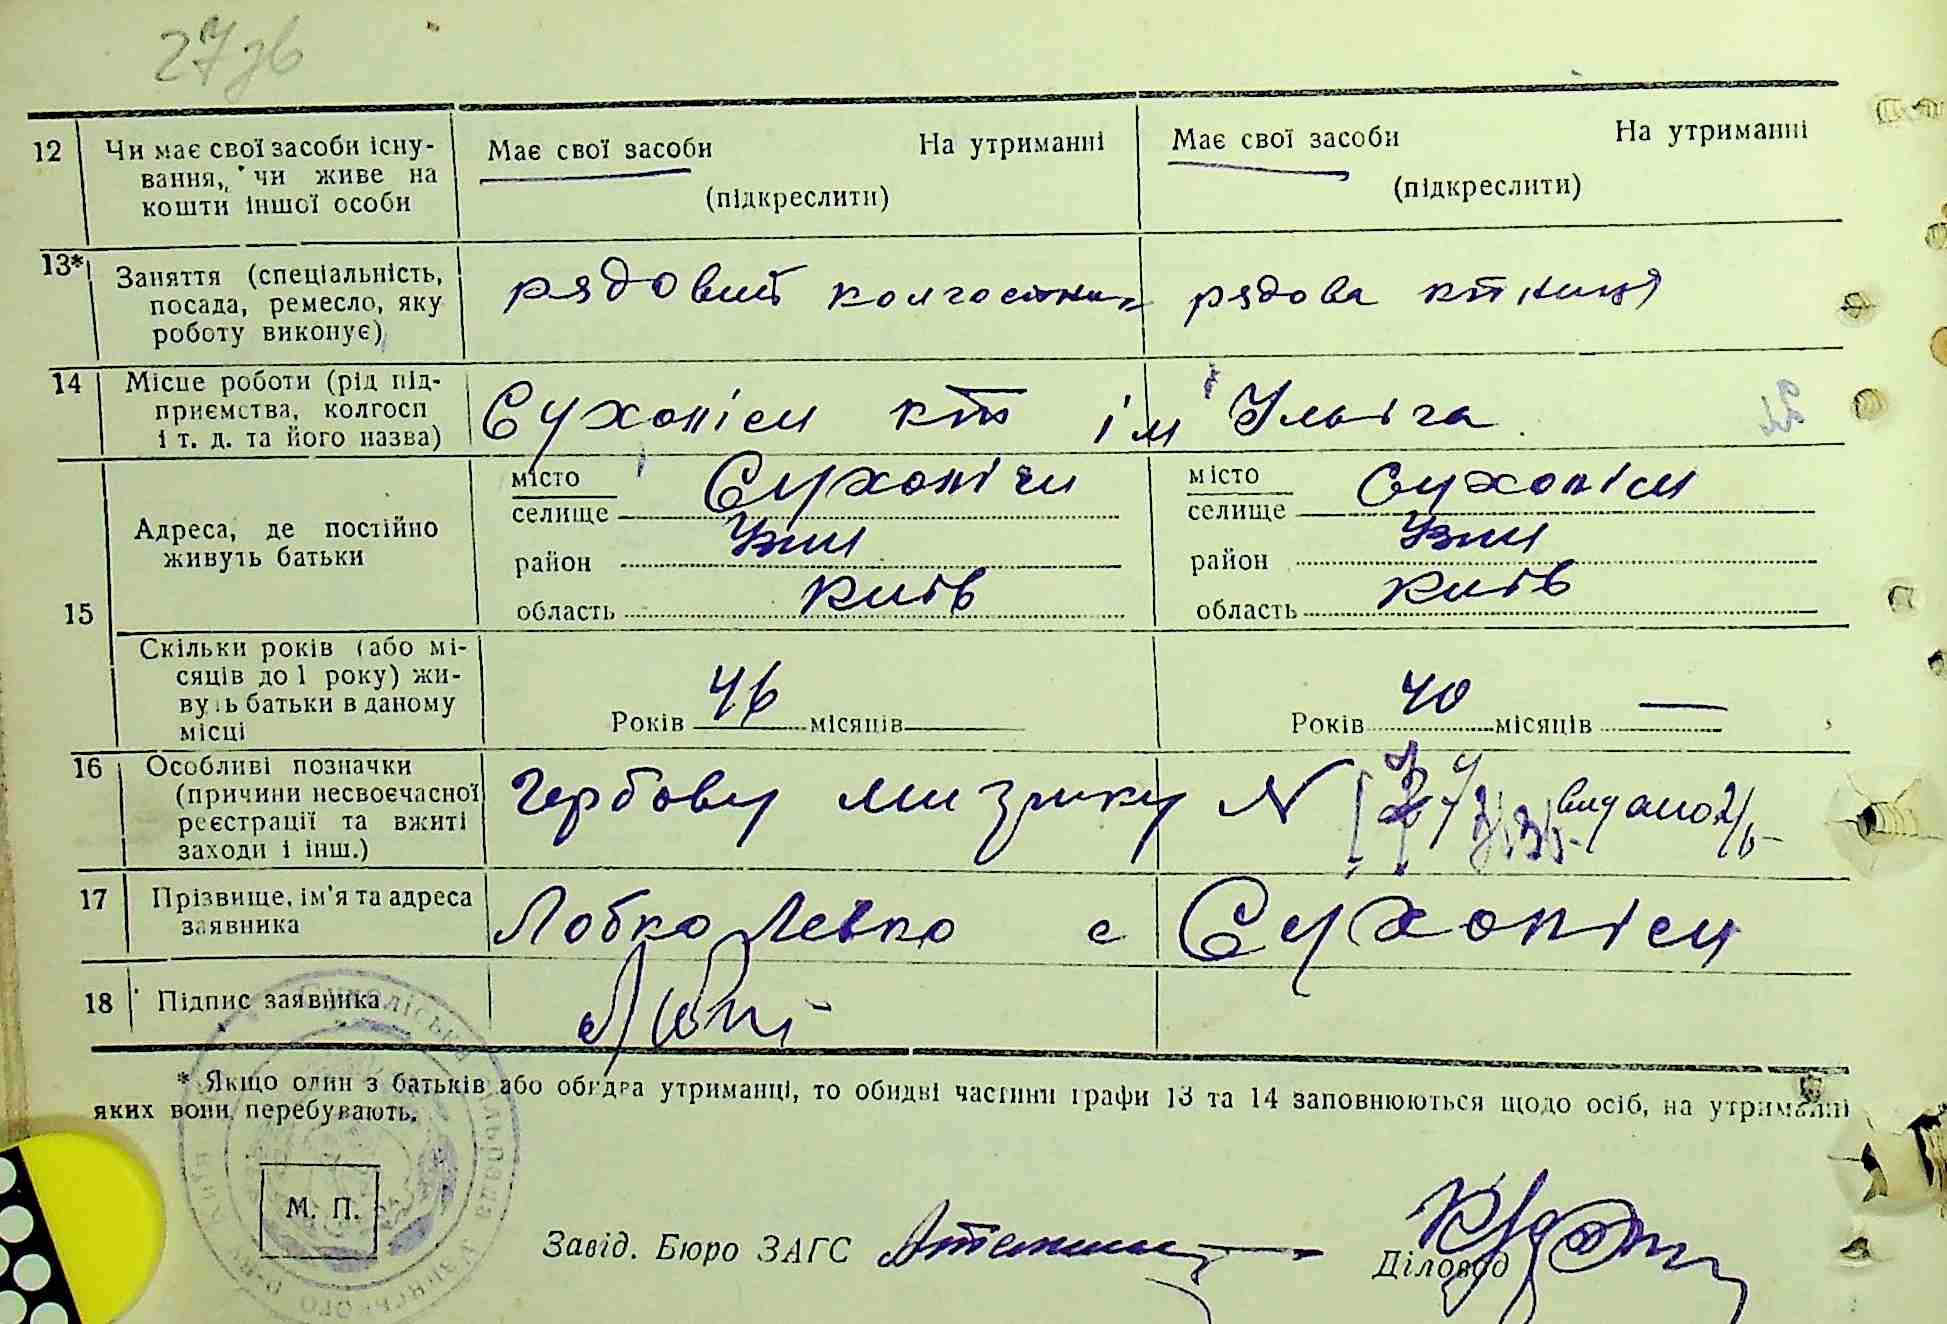 27зв
12 Чи має свої засоби існу- Має свої засоби На утриманні Має свої засоби На утриманні
вання, чи живе на
кошти іншої особи (підкреслити) (підкреслити)
13* Заняття (спеціальність, рядовий колгоспник рядова ктниця
посада, ремесло, яку
роботу виконує)
14 Місце роботи (рід під- Сухоліси кт ім Ілліча
приємства, колгосп
і т. д. та його назва)
15 Адреса, де постійно
живуть батьки
місто Сухоліси місто Сухоліси
селище селище
район Узин район Узин
область Київ область Київ
Скільки років (або мі-
сяців до 1 року) жи-
вуть батьки в даному Років 46 місяців Років 40 місяців —
місці
16 Особливі позначки Гербову марку N видано
(причини несвоєчасної
реєстрації та вжиті
заходи і інш.)
17 Прізвище, ім'я та адреса Лобко Левко с Сухоліси
заявника
18 Підпис заявника
* Якщо один з батьків або обидва утриманці, то обидві частини графи 13 та 14 заповнюються щодо осіб, на утриманні
яких вони перебувають.
М. П.
Завід. Бюро ЗАГС Діловод